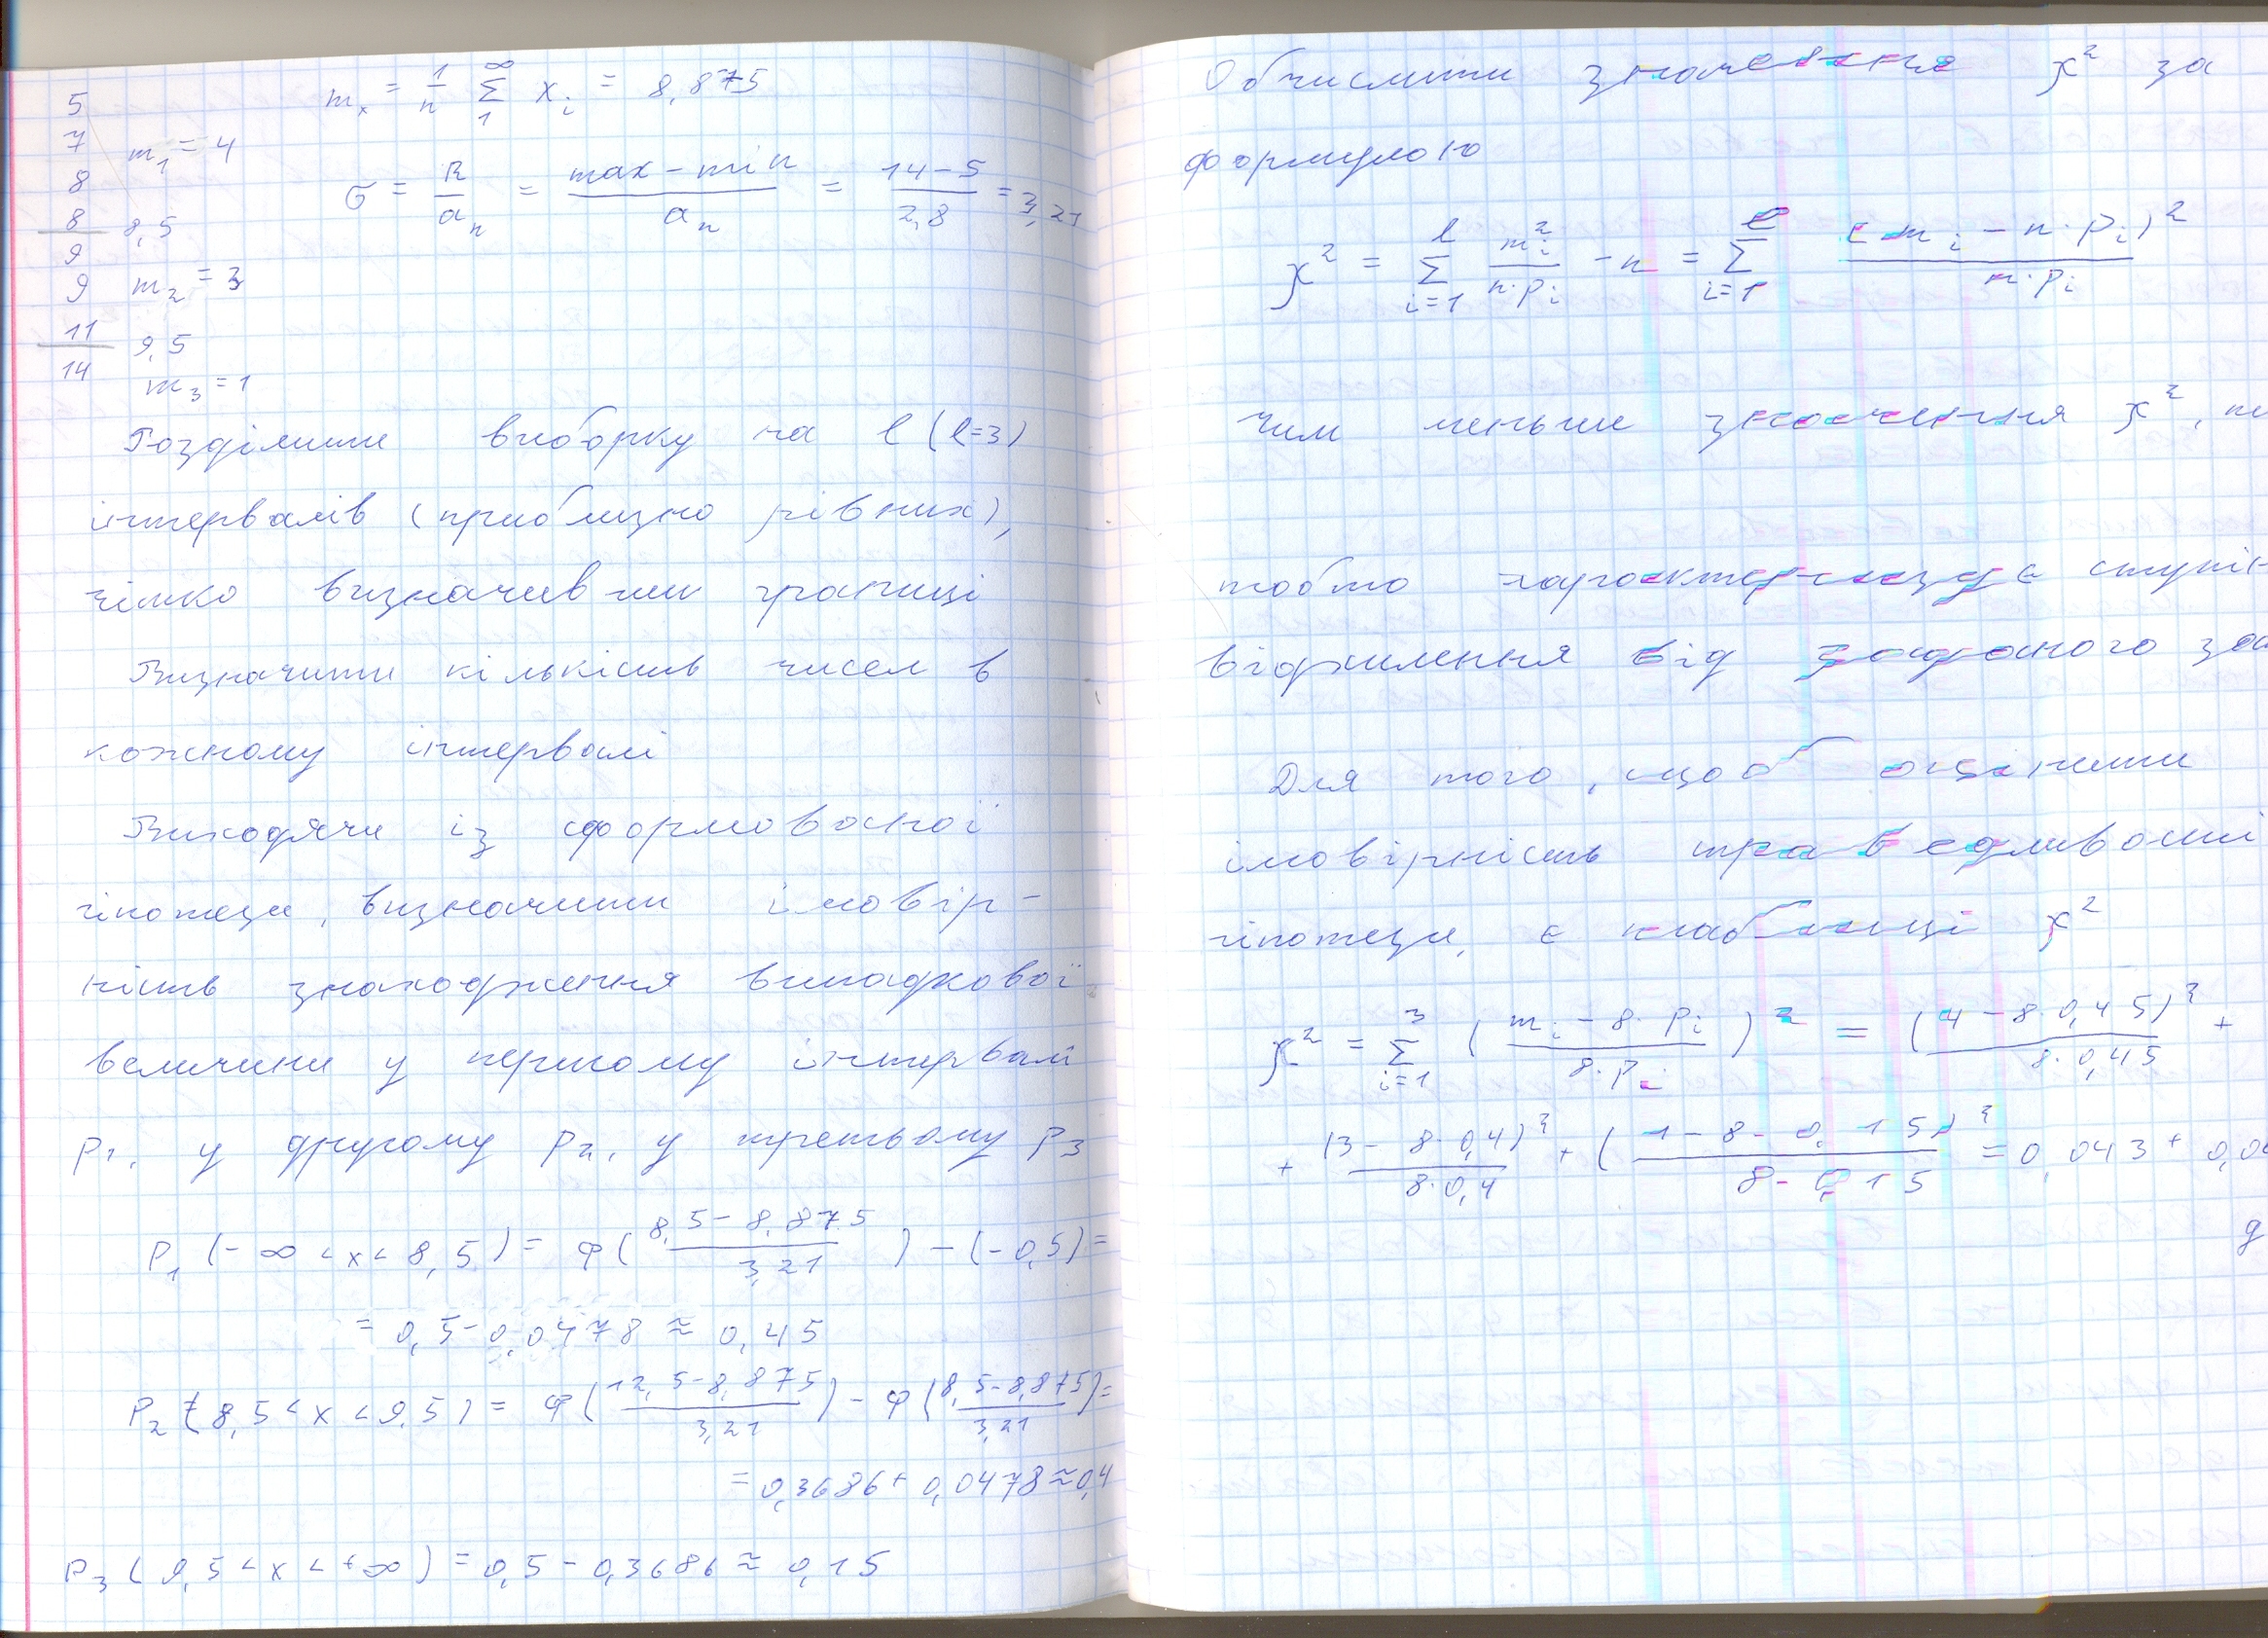 5
7
8
8
9
9
11
14
m₁ = 4
8,5
m₂ = 3
9,5
m₃ = 1
mₓ = 1/n ∞Σ1 xᵢ = 8,875
σ = R/aₙ = (max − min)/aₙ = (14 − 5)/2,8 = 3,21
Розділити виборку на l (l=3)
інтервалів (приблизно рівних),
чітко визначивши границі
Визначити кількість чисел в
кожному інтервалі
Виходячи із сформованої
гіпотези, визначити імовір-
ність знаходження випадкової
величини у першому інтервалі
p₁, у другому p₂, у третьому p₃
P₁ (−∞ < x < 8,5) = φ((8,5 − 8,875)/3,21) − (−0,5) =
= 0,5 − 0,0478 ≈ 0,45
P₂ (8,5 < x < 9,5) = φ((12,5 − 8,875)/3,21) − φ((8,5 − 8,875)/3,21) =
= 0,3686 + 0,0478 ≈ 0,4
P₃ (9,5 < x < +∞) = 0,5 − 0,3686 ≈ 0,15
Обчислити значення χ² за
формулою
χ² = lΣi=1 mᵢ²/(n·pᵢ) − n = lΣi=1 (mᵢ − n·pᵢ)²/(n·pᵢ)
Чим меньше значення χ²,
тобто характеризує ступін
відхилення від заданого за
Для того, щоб оцінити
імовірність праведливості
гіпотези, є таблиці χ²
χ² = 3Σi=1 ((mᵢ − 8·pᵢ)/(8·pᵢ))² = (4 − 8·0,45)²/(8·0,45) +
+ (3 − 8·0,4)²/(8·0,4) + (1 − 8·0,15)²/(8·0,15) = 0,043 + 0,0